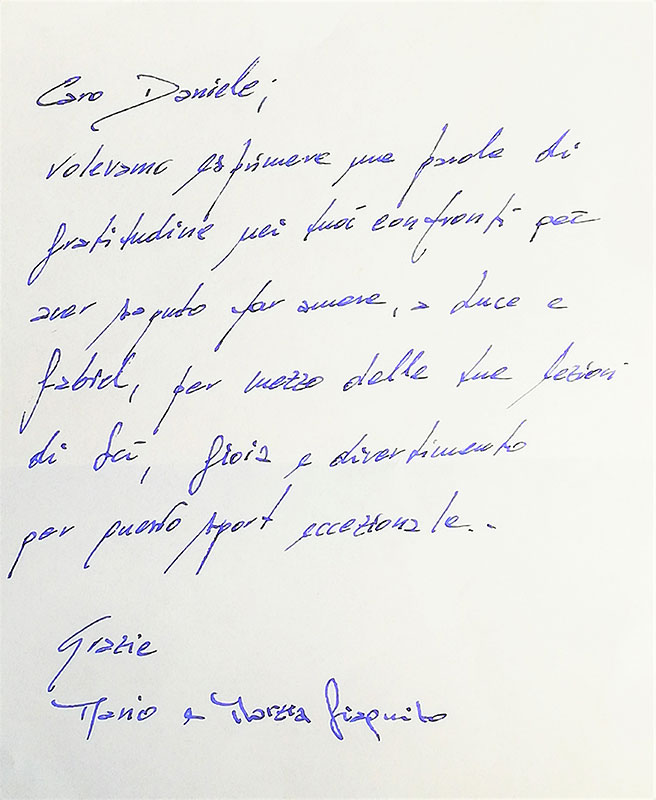 Caro Daniele;
volevamo esprimere una parola di
gratitudine nei tuoi confronti per
aver saputo far amare, a Luce e
Gabriel, per mezzo delle tue lezioni
di sci, gioia e divertimento
per questo sport eccezionale..
Grazie
Mario e